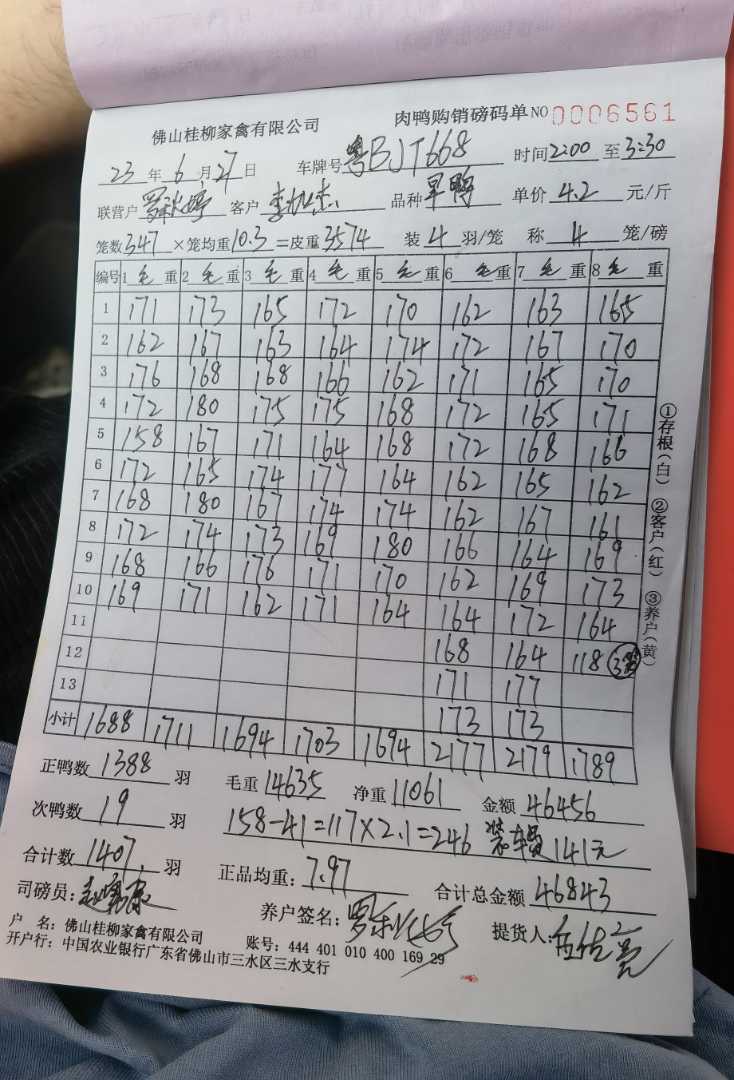 佛山桂柳家禽有限公司 肉鸭购销磅码单 NO 0006561
23 年 6 月 27 日 车牌号 粤BJT668 时间 2:00 至 3:30
联营户 客户 品种 旱鸭 单价 4.2 元/斤
笼数 347 ×笼均重 10.3 =皮重 3574 装 4 羽/笼 称 4 笼/磅
编号 1 毛 重 2 毛 重 3 毛 重 4 毛 重 5 毛 重 6 毛 重 7 毛 重 8 毛 重
1 171 173 165 172 170 162 163 165
2 162 167 163 164 174 172 167 170
3 176 168 168 166 162 171 165 170
4 172 180 175 175 168 172 165 171
5 158 167 171 164 168 172 168 166
6 172 165 174 177 164 162 165 162
7 168 180 167 174 174 162 167 161
8 172 174 173 169 180 166 164 169
9 168 166 176 171 170 162 169 173
10 169 171 162 171 164 164 172 164
11 168 164 118
12 171 177
13 173 173
小计 1688 1711 1694 1703 1694 2177 2179 1789
正鸭数 1388 羽 毛重 14635 净重 11061 金额 46456
次鸭数 19 羽 158-41=117×2.1=246 装车费 141元
合计数 1407 羽 正品均重: 7.97 合计总金额 46843
司磅员: 养户签名: 提货人:
户 名: 佛山桂柳家禽有限公司 账号: 444 401 010 400 169 29
开户行: 中国农业银行广东省佛山市三水区三水支行
①存根(白) ②客户(红) ③养户(黄)